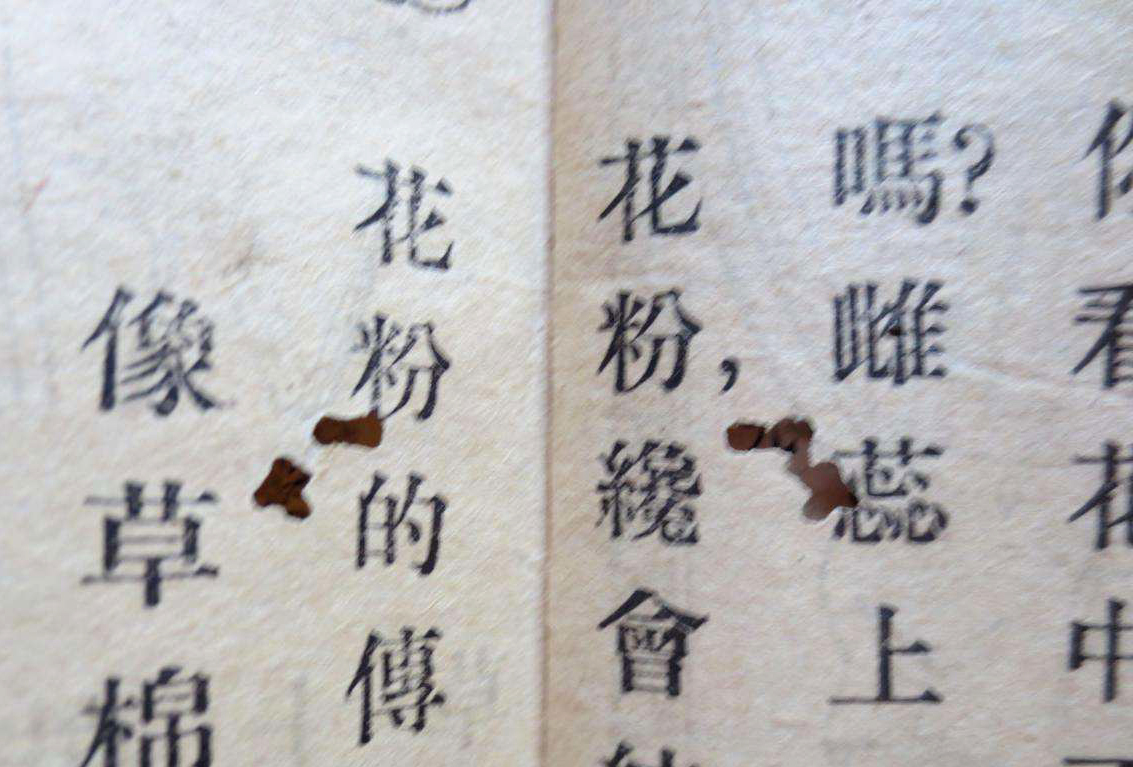 看花中
嗎?雌蕊上
花粉,纔會
花粉的傳
像草棉